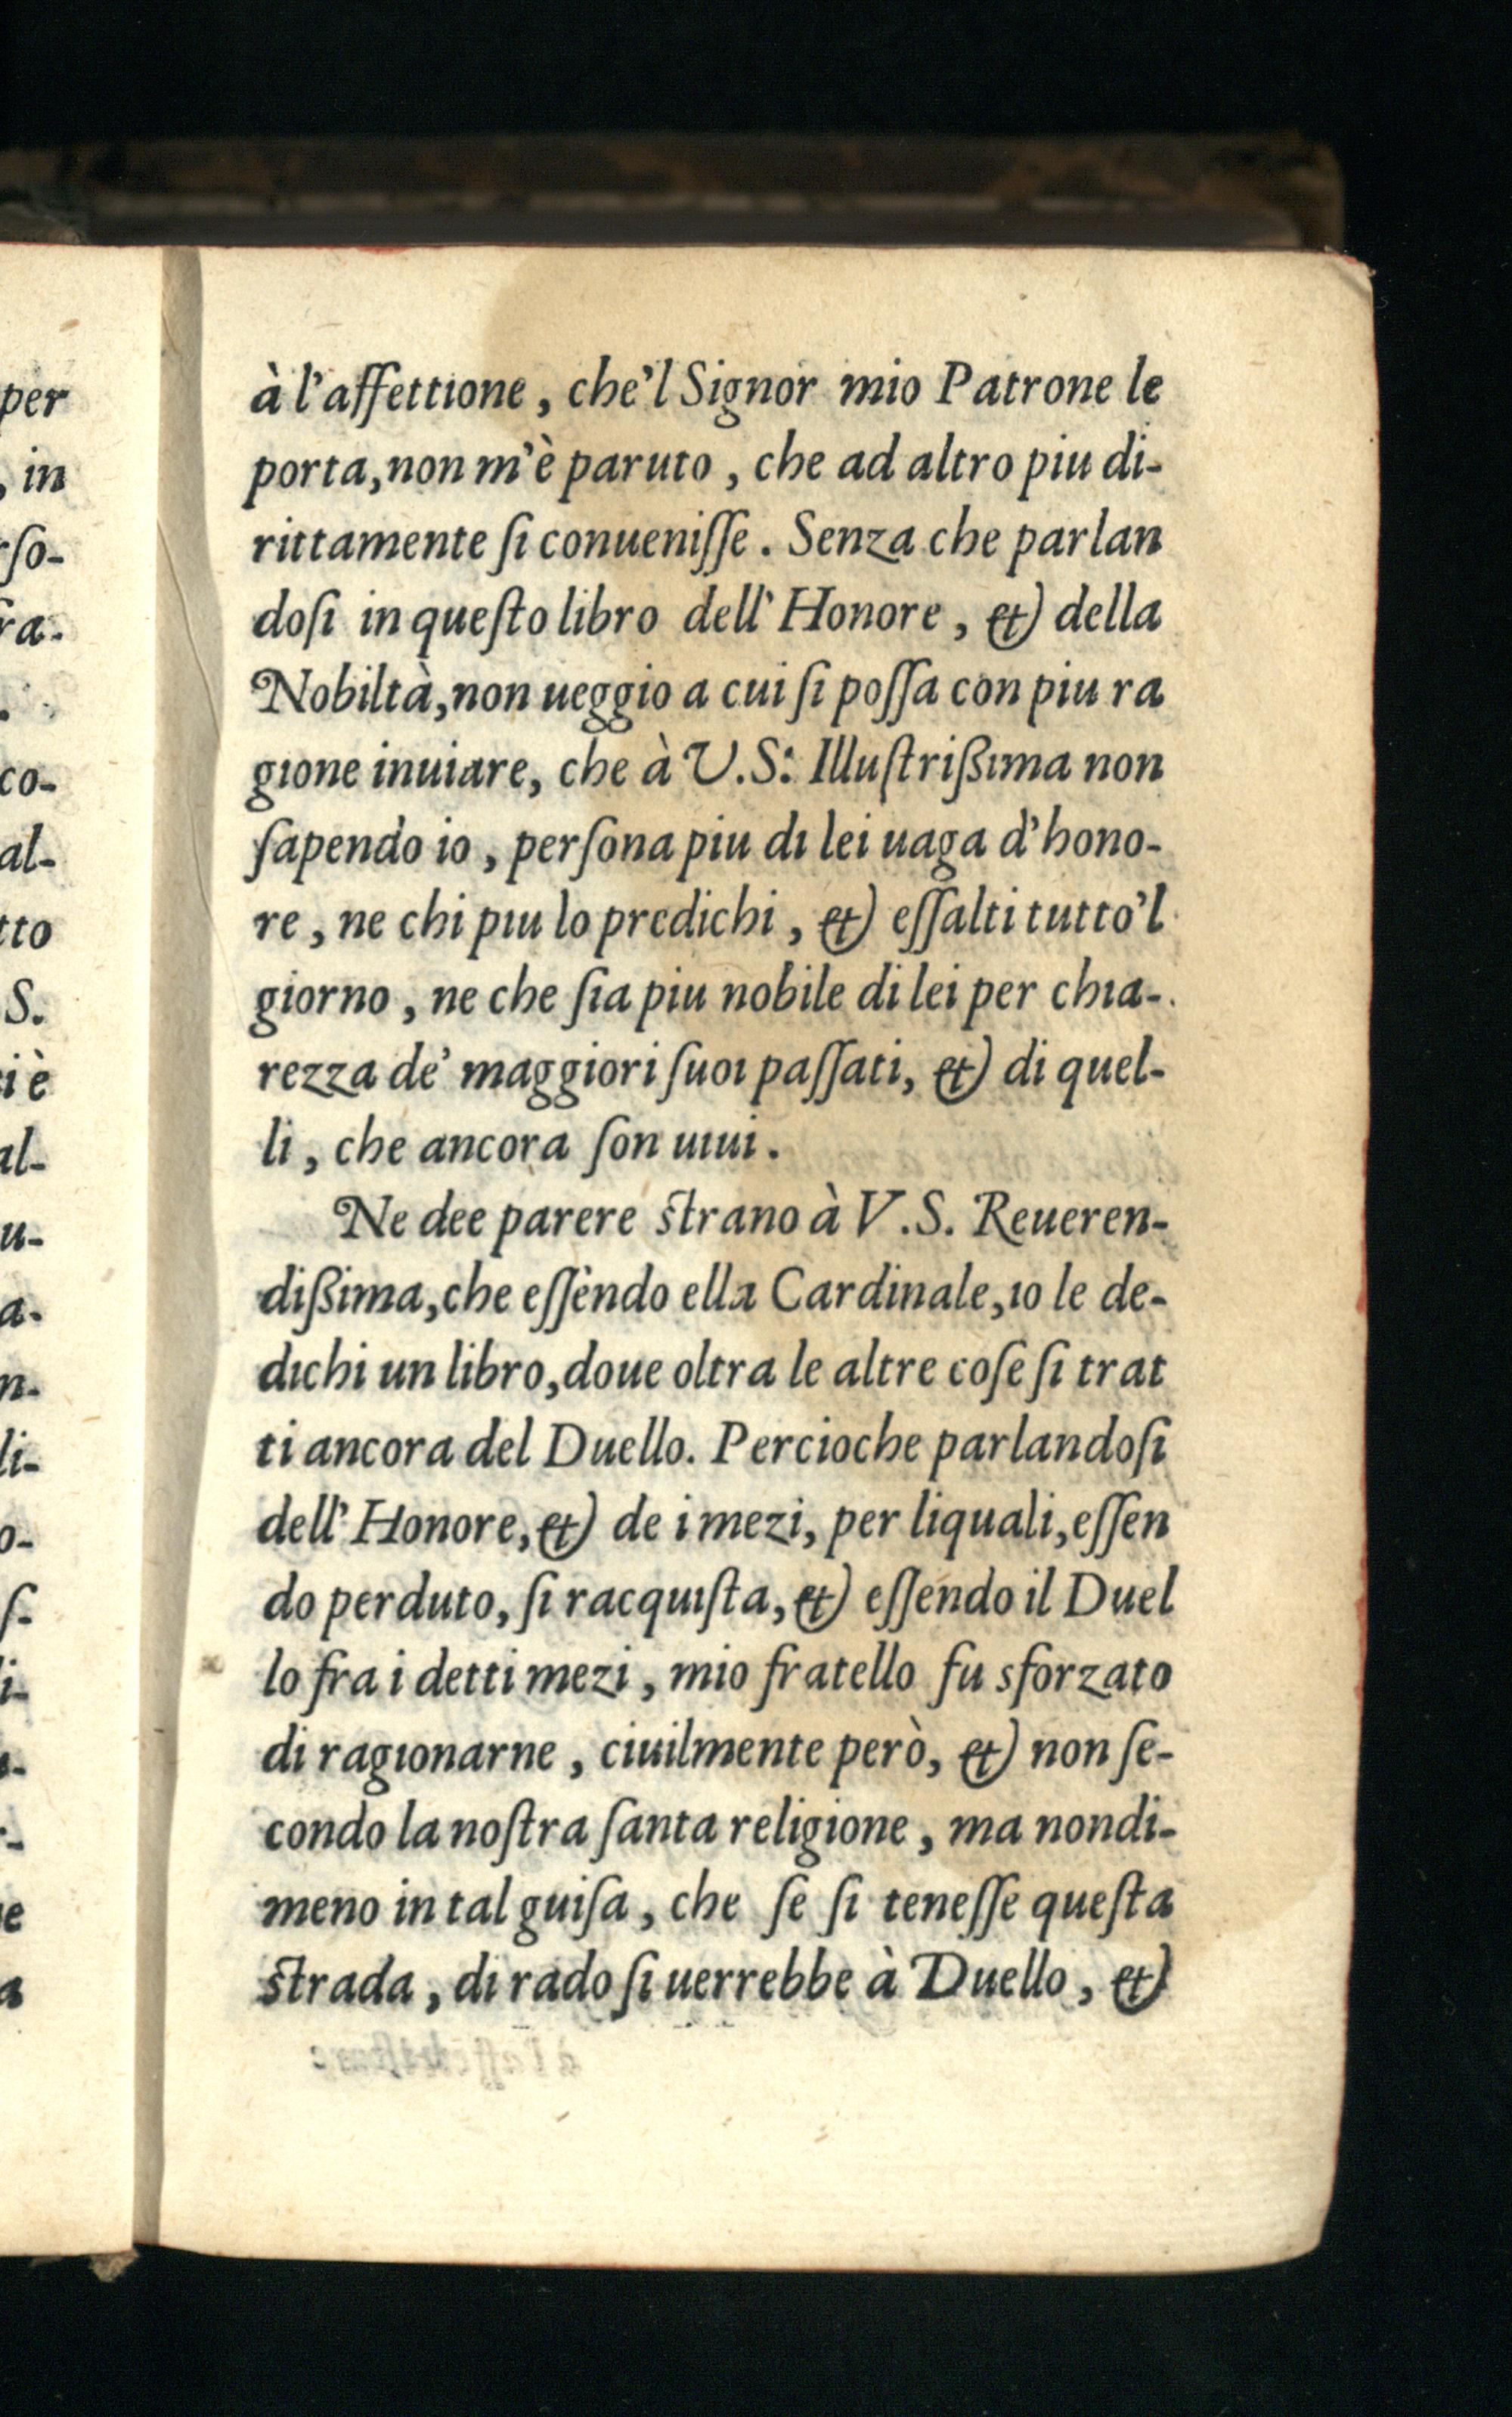 à l'affettione, che'l Signor mio Patrone le
porta, non m'è paruto, che ad altro piu di-
rittamente ſi conueniſſe. Senza che parlan
doſi in queſto libro dell'Honore, & della
Nobiltà, non ueggio a cui ſi poſſa con piu ra
gione inuiare, che à V.S: Illuſtrißima non
ſapendo io, perſona piu di lei uaga d'hono-
re, ne chi piu lo predichi, & eſſalti tutto'l
giorno, ne che ſia piu nobile di lei per chia-
rezza de' maggiori ſuoi paſſati, & di quel-
li, che ancora ſon uiui.
Ne dee parere ſtrano à V.S. Reueren-
dißima, che eſſèndo ella Cardinale, io le de-
dichi un libro, doue oltra le altre coſe ſi trat
ti ancora del Duello. Percioche parlandoſi
dell'Honore, & de i mezi, per liquali, eſſen
do perduto, ſi racquiſta, & eſſendo il Duel
lo fra i detti mezi, mio fratello fu sforzato
di ragionarne, ciuilmente però, & non ſe-
condo la noſtra ſanta religione, ma nondi-
meno in tal guiſa, che ſe ſi teneſſe queſta
ſtrada, di rado ſi uerrebbe à Duello, &